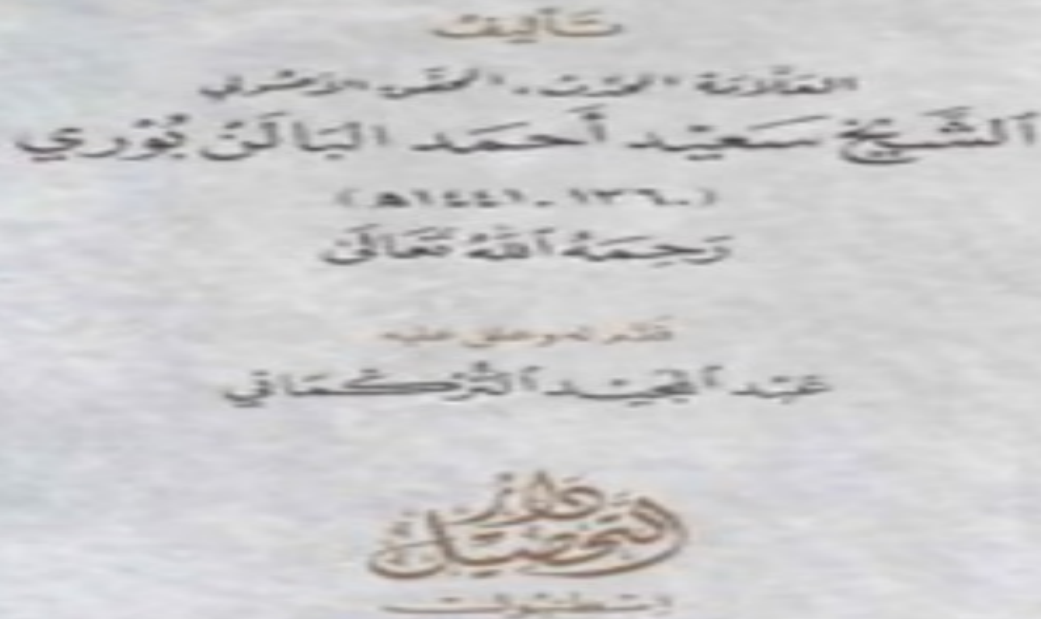 تَأليفُ
العَلَّامَة المحَدِّث، المحقِّق الأصُولي
الشَّيْخ سَعِيْد أَحمَد البَالَنْ بُوْرِي
(١٣٦٠ - ١٤٤١هـ)
رَحِمَهُ اللهُ تَعَالَى
قدَّم له وعلق عليه
عَبْد المَجِيْد التُّرْكُمَانِي
دَارُ
التَّحْصِيْل
إسطنبول